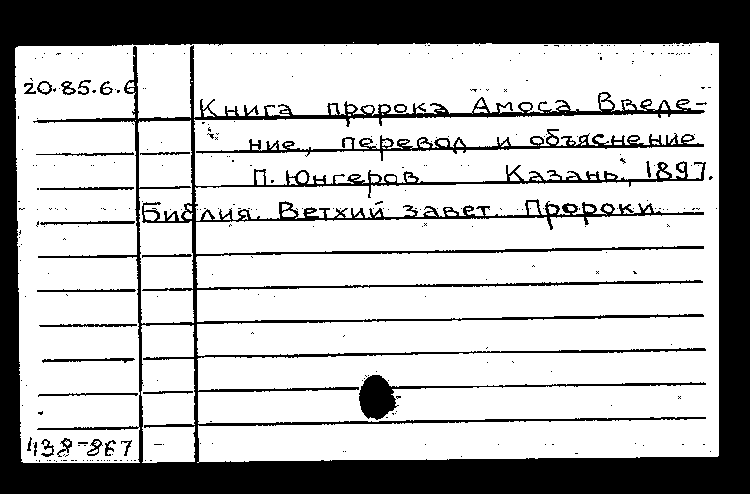 20.85.6.6
Книга пророка Амоса. Введе-
ние, перевод и объяснение
П. Юнгеров. Казань, 1897.
Библия. Ветхий завет. Пророки.
438-867